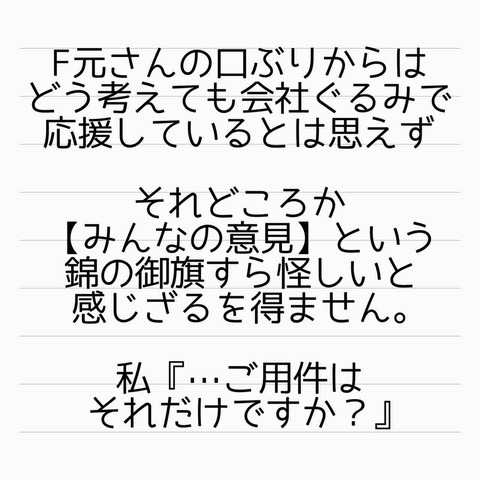 F元さんの口ぶりからは
どう考えても会社ぐるみで
応援しているとは思えず
それどころか
【みんなの意見】という
錦の御旗すら怪しいと
感じざるを得ません。
私『…ご用件は
それだけですか？』